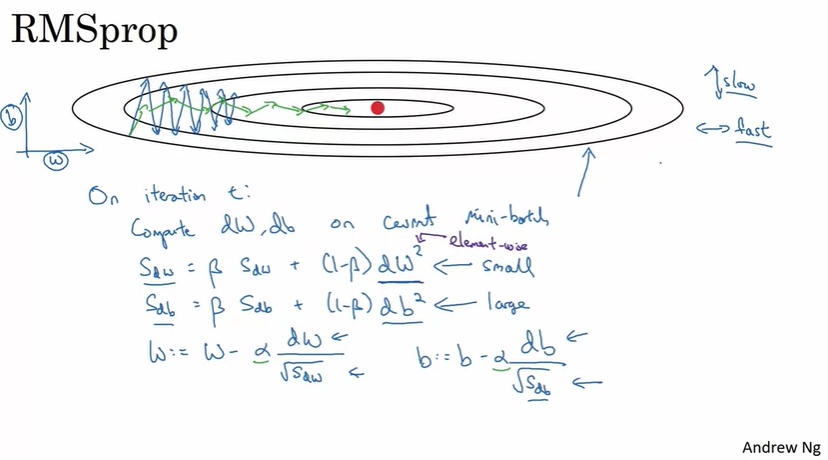 RMSprop
slow
fast
b
w
On iteration t:
Compute dW, db on current mini-batch
element-wise
S_dw = β S_dw + (1-β) dW² ← small
S_db = β S_db + (1-β) db² ← large
W := W - α dW/√S_dw ← ← b := b - α db/√S_db ← ←
Andrew Ng